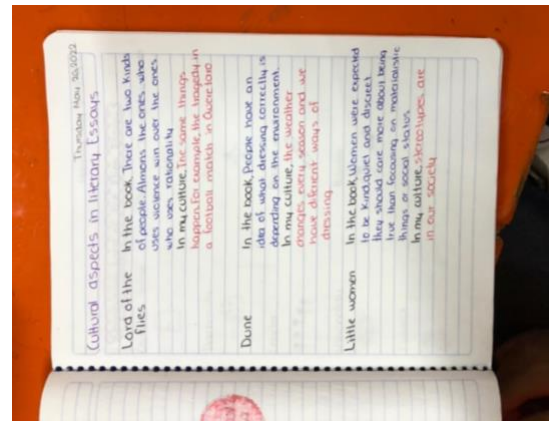 Thursday May 26, 2022
Cultural aspects in literary Essays
Lord of the flies
In the book, There are two kinds
of people. Almons the ones who
uses violence win over the ones
who uses rationality
In my culture, The same things
happen. For example, the tragedy in
a football match in Queretaro
Dune
In the book, People have an
idea of what dressing correctly is
depending on the environment.
In my culture, the weather
changes every season and we
have diferent ways of
dressing
Little women
In the book, Women were expected
to be kind, quiet and discreet
they should care more about being
true than focusing on materialistic
things or social status
In my culture, stereotypes are
in our society